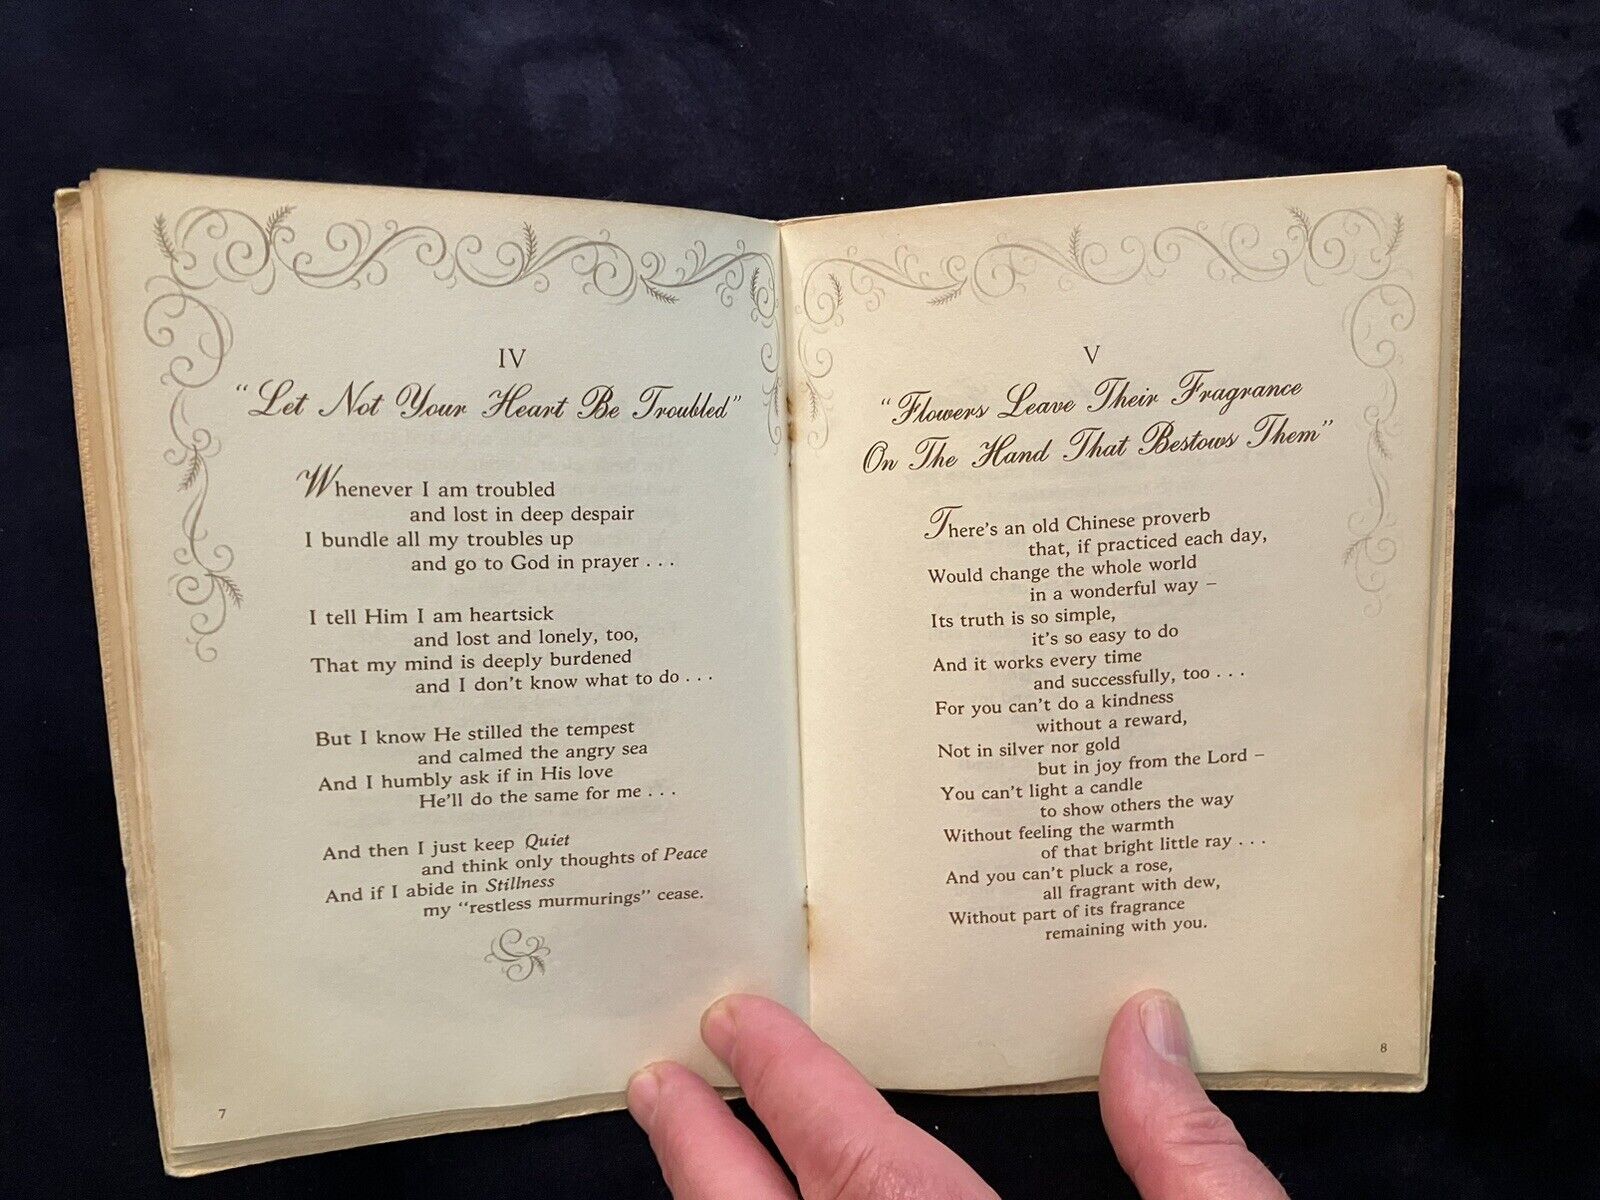 IV
"Let Not Your Heart Be Troubled"
Whenever I am troubled
and lost in deep despair
I bundle all my troubles up
and go to God in prayer . . .
I tell Him I am heartsick
and lost and lonely, too,
That my mind is deeply burdened
and I don't know what to do . . .
But I know He stilled the tempest
and calmed the angry sea
And I humbly ask if in His love
He'll do the same for me . . .
And then I just keep Quiet
and think only thoughts of Peace
And if I abide in Stillness
my "restless murmurings" cease.
7
V
"Flowers Leave Their Fragrance
On The Hand That Bestows Them"
There's an old Chinese proverb
that, if practiced each day,
Would change the whole world
in a wonderful way –
Its truth is so simple,
it's so easy to do
And it works every time
and successfully, too . . .
For you can't do a kindness
without a reward,
Not in silver nor gold
but in joy from the Lord –
You can't light a candle
to show others the way
Without feeling the warmth
of that bright little ray . . .
And you can't pluck a rose,
all fragrant with dew,
Without part of its fragrance
remaining with you.
8